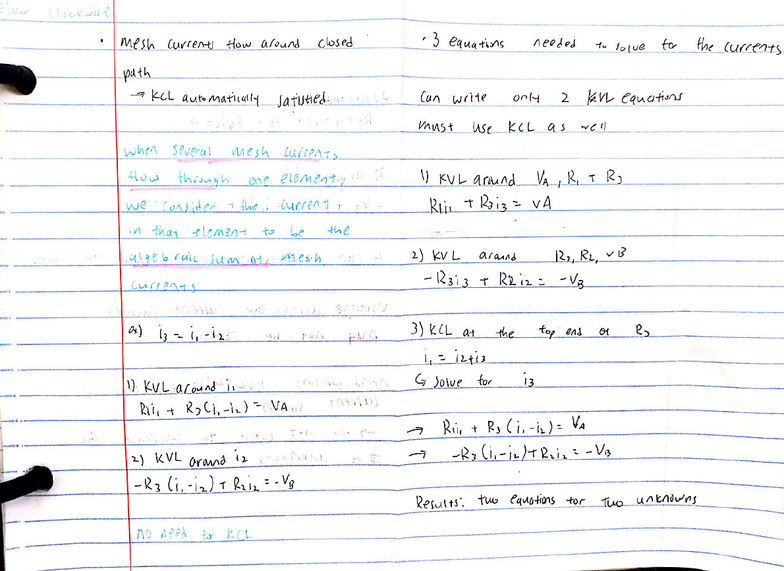 Flow Clockwise
• mesh currents flow around closed
path
→ KCL automatically satisfied
when several mesh currents
flow through one element,
we consider the i current
in that element to be the
algebraic sum of mesh
currents
ex) i3 = i1 - i2
1) KVL around i1
R1i1 + R3(i1-i2) = VA
2) KVL around i2
-R3(i1-i2) + R2i2 = -VB
no need for KCL
• 3 equations needed to solve for the currents
Can write only 2 KVL equations
must use KCL as well
1) KVL around VA, R1 + R3
R1i1 + R3i3 = VA
2) KVL around R3, R2, VB
-R3i3 + R2i2 = -VB
3) KCL at the top end of R3
i1 = i2+i3
↳ solve for i3
→ R1i1 + R3(i1-i2) = VA
→ -R3(i1-i2)+R2i2 = -VB
Results: two equations for two unknowns